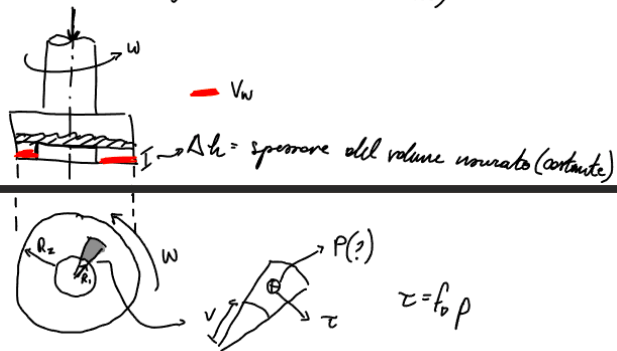 ω
V_W
Δh = spessore del volume usurato (costante)
R₂
R₁
ω
P(?)
r
τ
τ = f₀ p